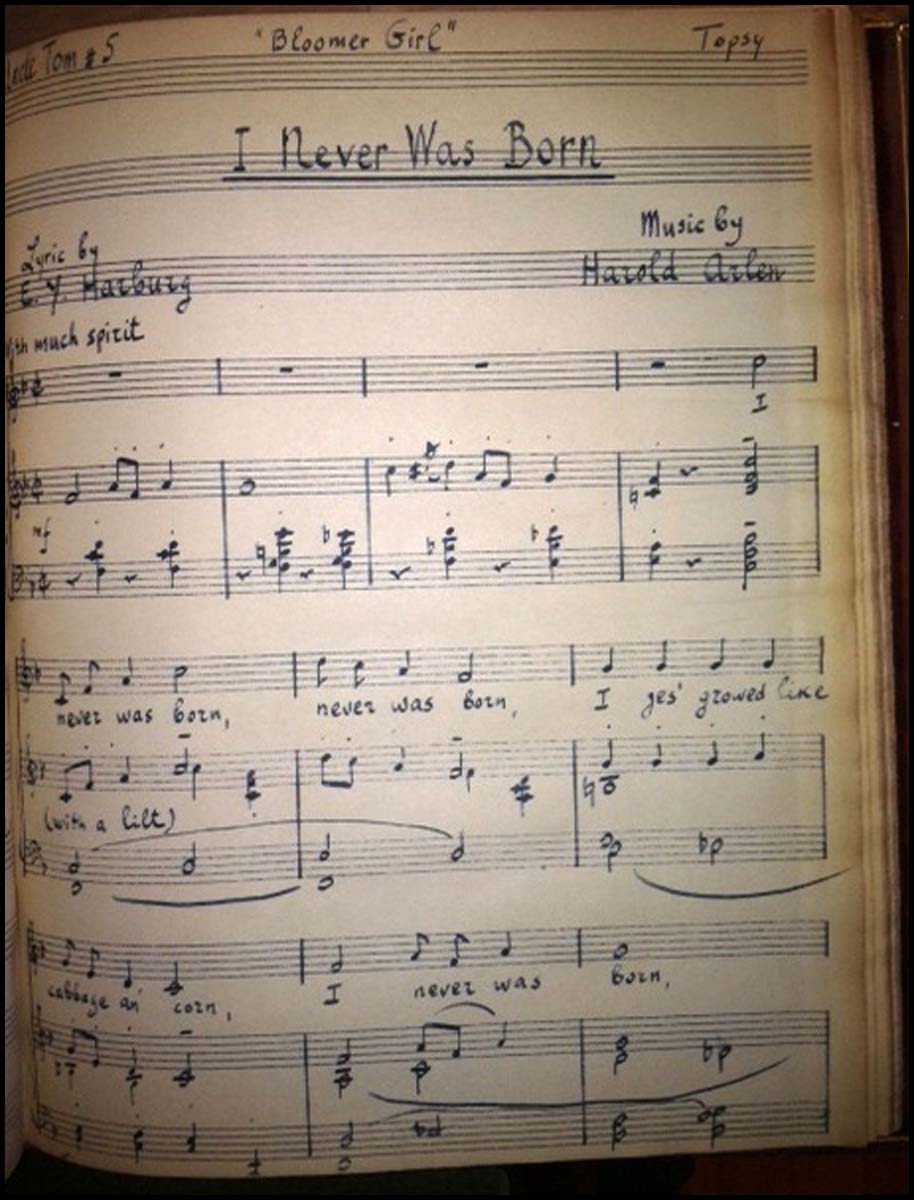 Uncle Tom #5 "Bloomer Girl" Topsy
I Never Was Born
Lyric by
E. Y. Harburg
Music by
Harold Arlen
With much spirit
I
mf
never was born, never was born, I jes' growed like
(with a lilt)
cabbage an' corn, I never was born,